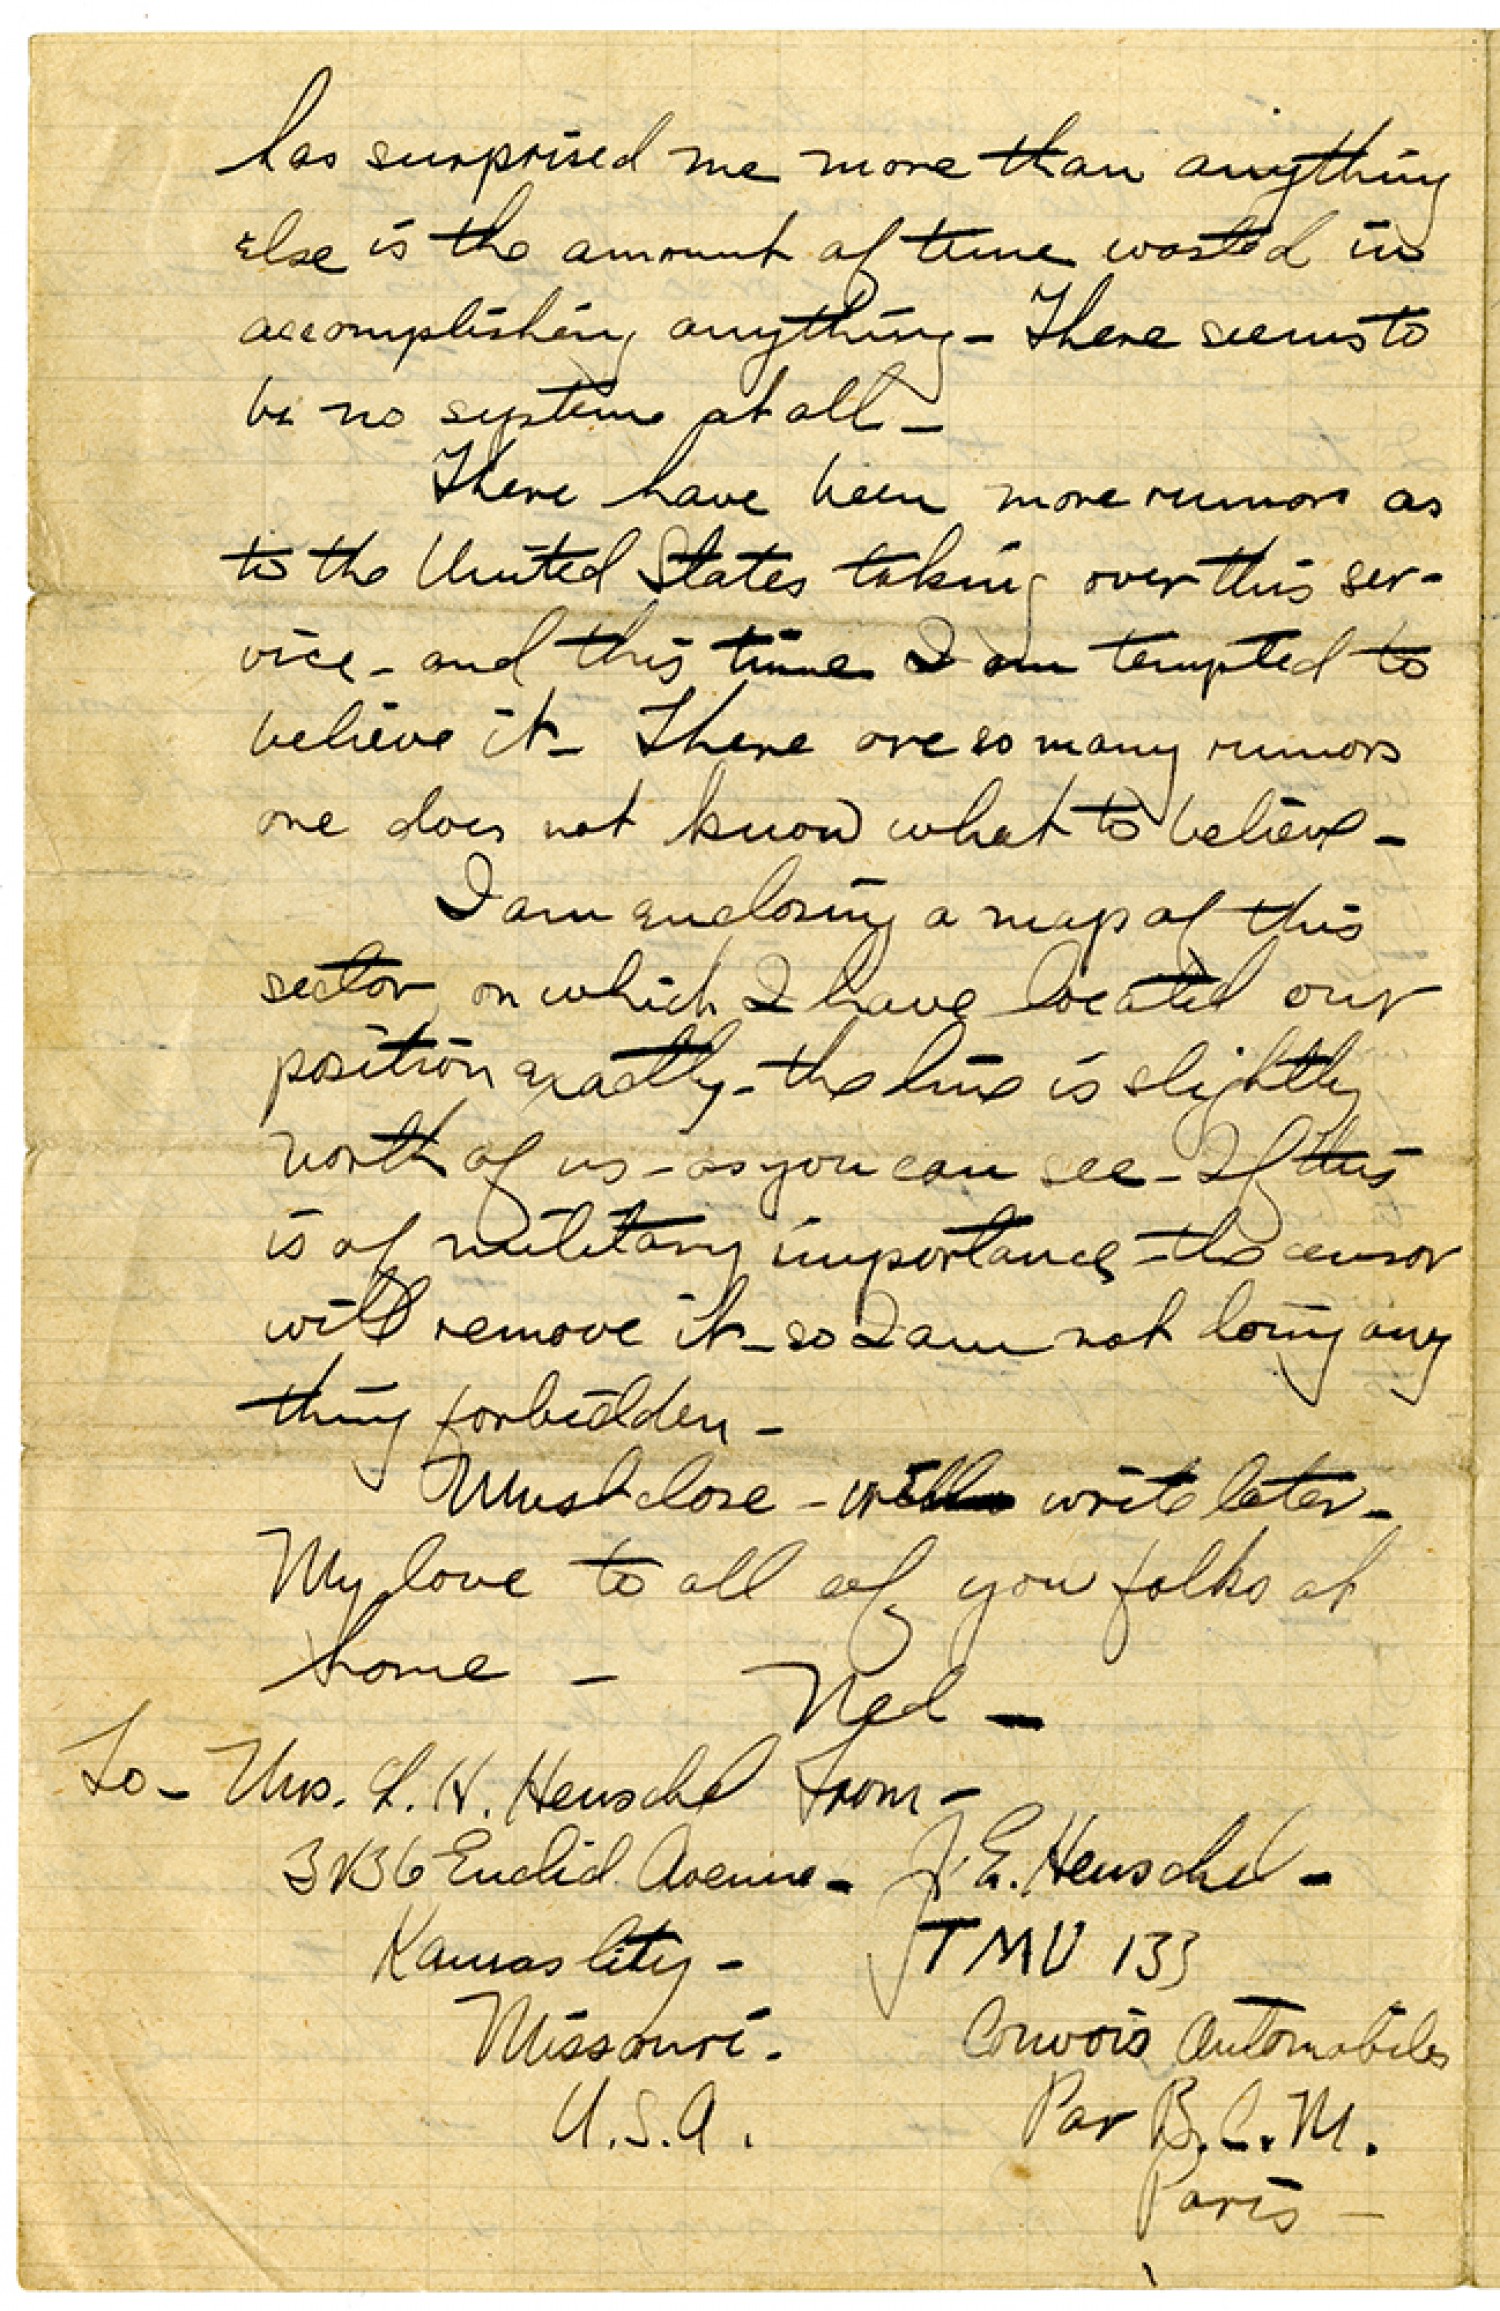 has surprised me more than anything
else is the amount of time wasted in
accomplishing anything - There seems to
be no system at all -
There have been more rumors as
to the United States taking over this ser-
vice - and this time I am tempted to
believe it - There are so many rumors
one does not know what to believe -
I am enclosing a map of this
sector on which I have located our
position exactly - the line is slightly
north of us - as you can see - If this
is of military importance - the censor
will remove it - so I am not doing any
thing forbidden -
Must close - will write later -
My love to all of you folks at
home -
Ned -
To - Mrs. L. H. Henschel From -
Euclid Avenue - J. E. Henschel -
Kansas City - TMU 133
Missouri. Convois Automobiles
U.S.A. Par B.C.M.
Paris -